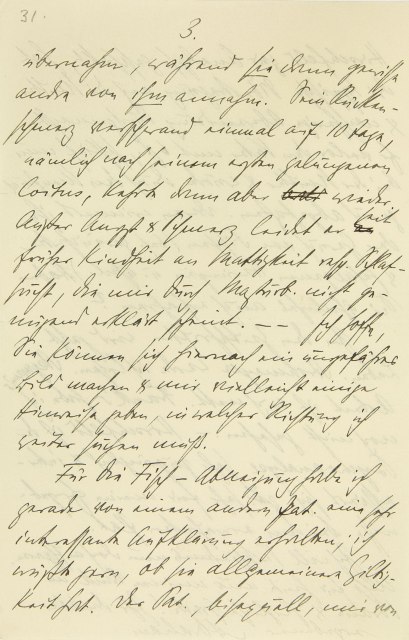 31.
3.
übernahm, während sie dann gewisse
andre von ihm annahm. Sein Rücken-
schmerz verschwand einmal auf 10 Tage,
nämlich nach seinem ersten gelungenen
Coitus, kehrte dann aber wieder.
Außer Angst & Schmerz leidet er seit
früher Kindheit an Mattigkeit resp. Schlaf-
sucht, die mir durch Masturb. nicht ge-
nügend erklärt scheint. –– Ich hoffe,
Sie können sich hiernach ein ungefähres
Bild machen & mir vielleicht einige
Hinweise geben, in welcher Richtung ich
weiter suchen muß.
Für die Fisch-Abneigung habe ich
gerade von einem andern Pat. eine sehr
interessante Aufklärung erhalten; ich
wüßte gern, ob sie allgemeinere Giltig-
keit hat. Der Pat., bisexuell, nur von